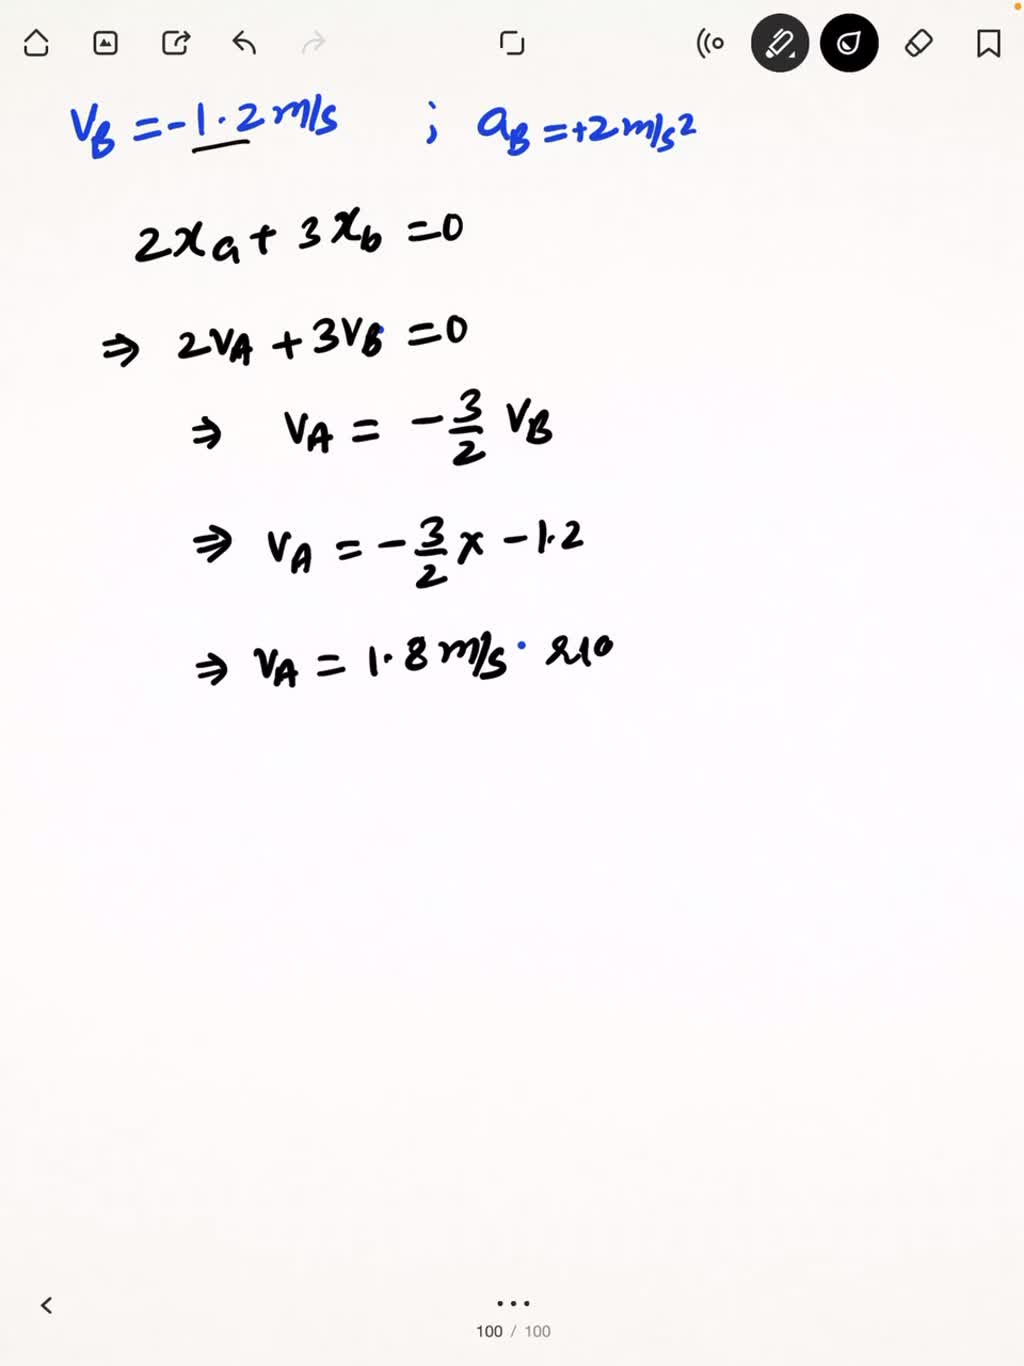 V_B = -1.2 m/s ; a_B = +2 m/s²
2x_a + 3x_b = 0
⇒ 2V_A + 3V_B = 0
⇒ V_A = -3/2 V_B
⇒ V_A = -3/2 x -1.2
⇒ V_A = 1.8 m/s.
100 / 100